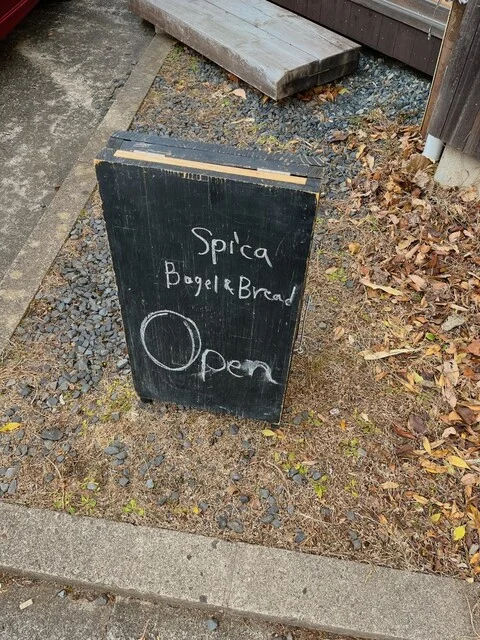 Spica
Bagel & Bread
Open